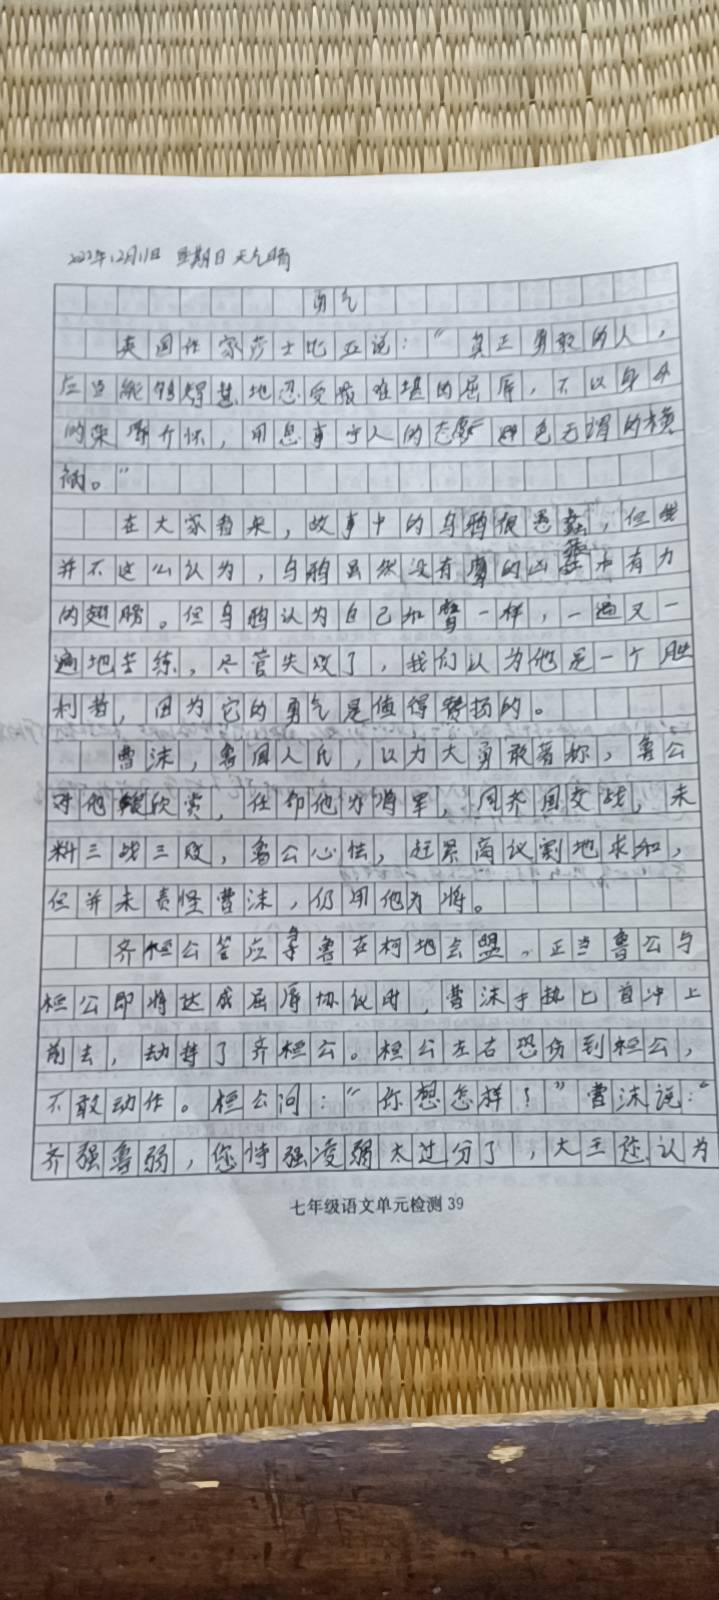 2022年12月11日 星期日 天气晴
勇气
英国作家莎士比亚说：“真正勇敢的人，
应当能够智慧地忍受最难堪的屈辱，不以身外
的荣辱介怀，用息事宁人的态度避免无谓的横
祸。”
在大家看来，故事中的乌鸦很愚蠢，但我
并不这么认为，乌鸦虽然没有鹰的凶猛和有力
的翅膀。但乌鸦认为自己和鹰一样，一遍又一
遍地苦练，尽管失败了，我们认为他是一个胜
利者，因为它的勇气是值得赞扬的。
曹沫，鲁国人氏，以力大勇敢著称，鲁公
对他很欣赏，任命他为将军，同齐国交战，未
料三战三败，鲁公心怯，赶紧商议割地求和，
但并未责怪曹沫，仍用他为将。
齐桓公答应与鲁在柯地会盟，正当鲁公与
桓公即将达成屈辱协议时，曹沫手执匕首冲上
前去，劫持了齐桓公。桓公左右恐伤到桓公，
不敢动作。桓公问：“你想怎样？”曹沫说：“
齐强鲁弱，您恃强凌弱太过分了，大王还认为
七年级语文单元检测 39